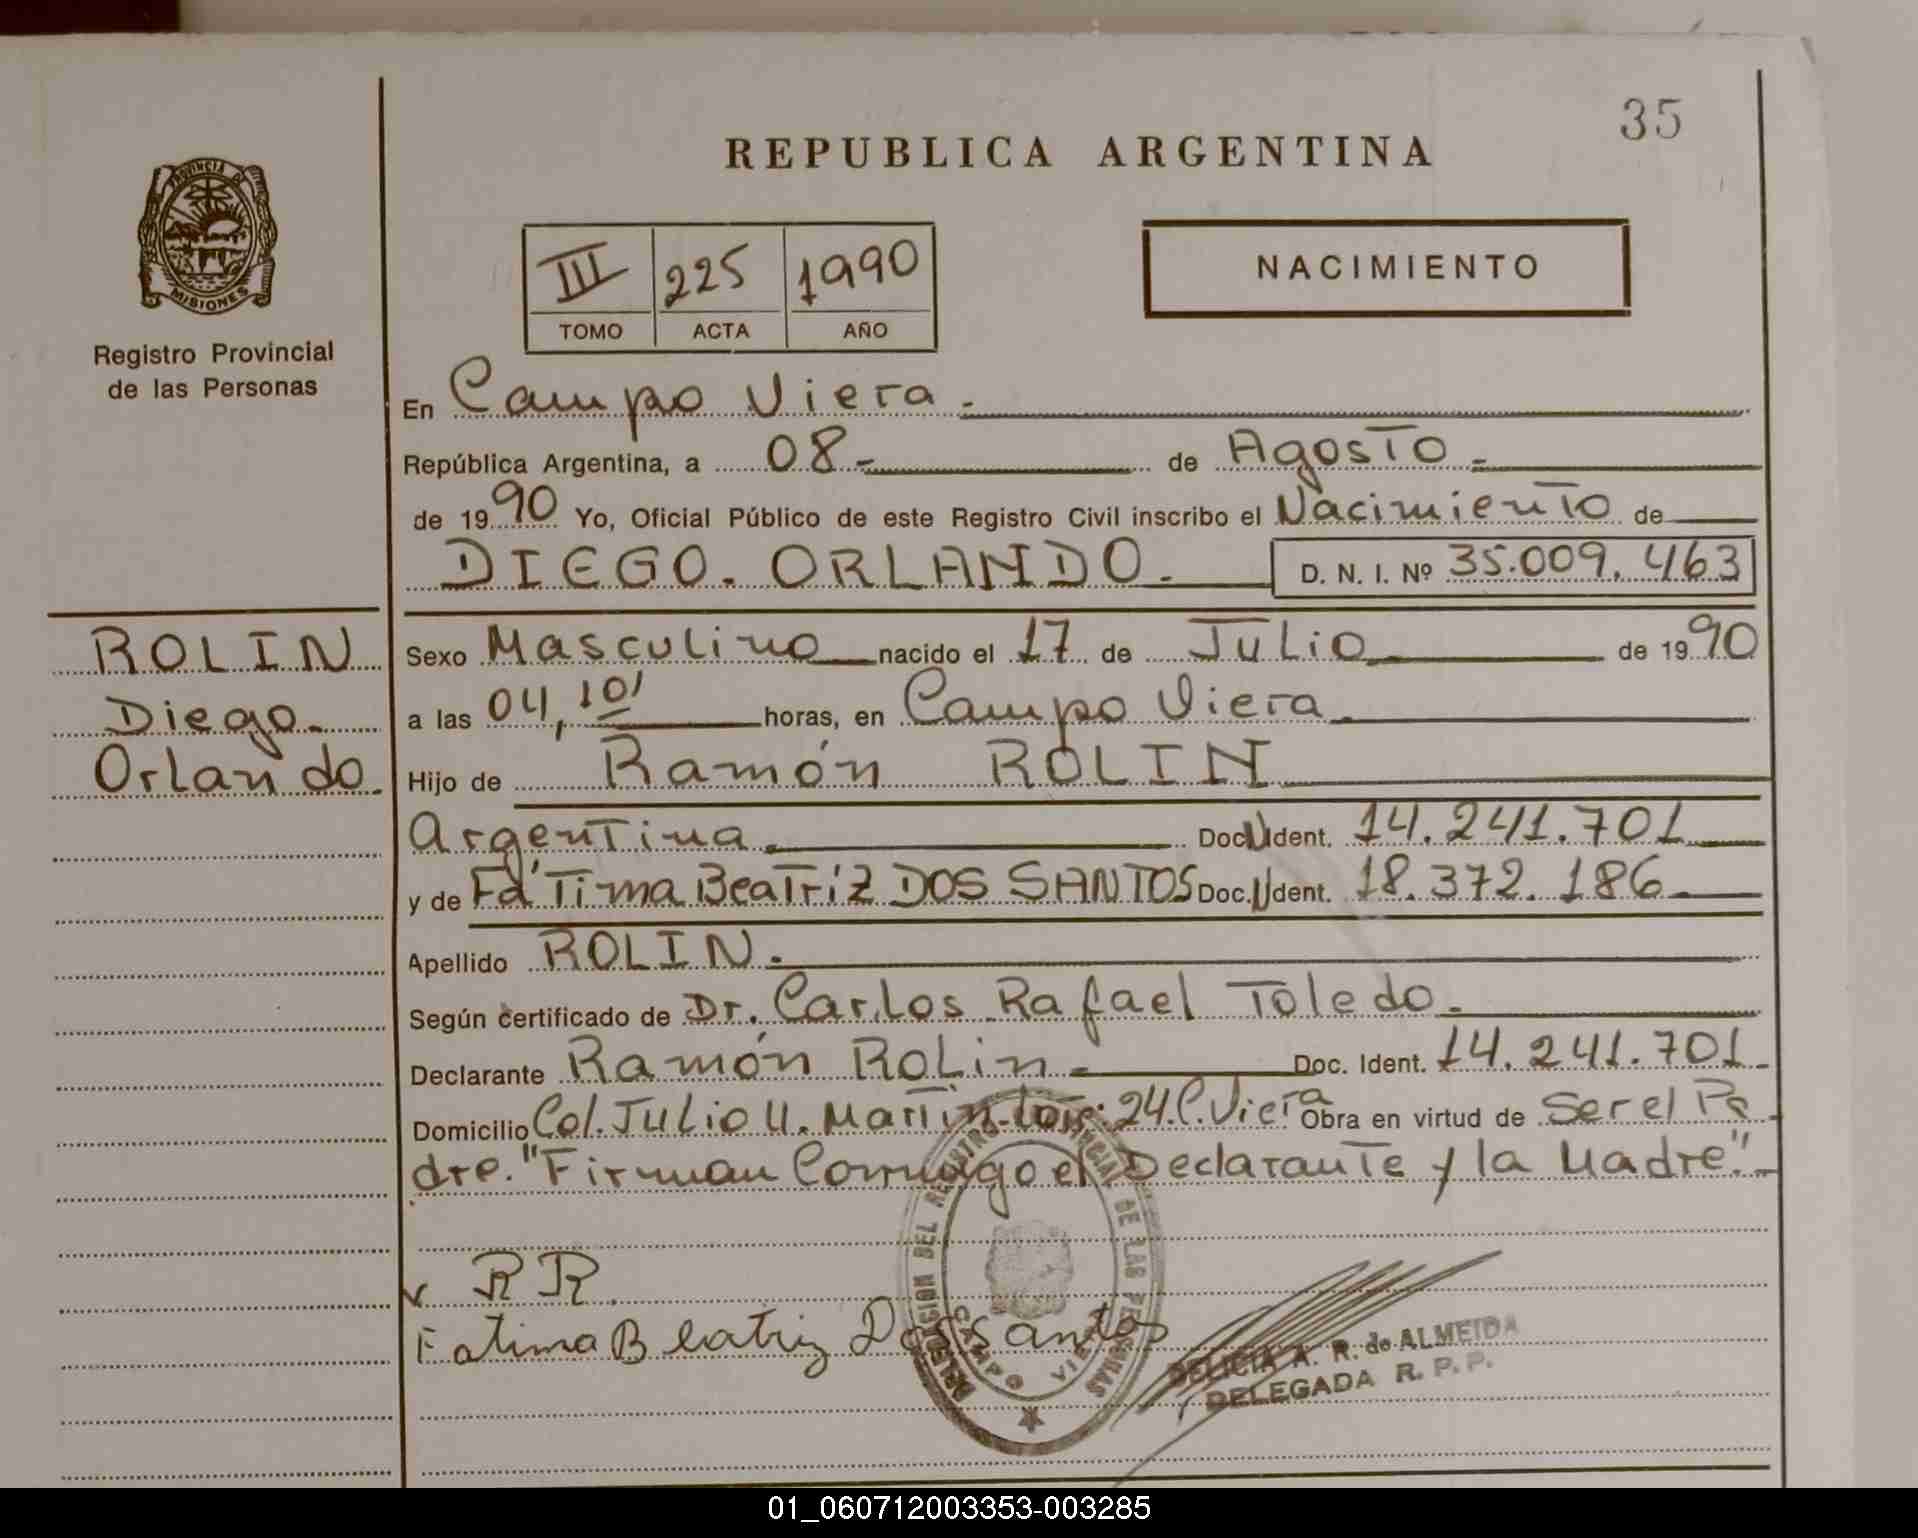 35
REPUBLICA ARGENTINA
PROVINCIA DE
MISIONES
Registro Provincial
de las Personas
III 225 1990
TOMO ACTA AÑO
NACIMIENTO
En Campo Viera.
República Argentina, a 08 de Agosto
de 1990 Yo, Oficial Público de este Registro Civil inscribo el Nacimiento de
DIEGO. ORLANDO. D. N. I. Nº 35.009.463
ROLIN
Diego
Orlando
Sexo Masculino nacido el 17 de Julio de 1990
a las 04,10' horas, en Campo Viera
Hijo de Ramón ROLIN
Argentina. Doc. U Ident. 14.241.701
y de Fátima Beatríz DOS SANTOS Doc. U Ident. 18.372.186
Apellido ROLIN.
Según certificado de Dr. Carlos Rafael Toledo.
Declarante Ramón Rolin Doc. Ident. 14.241.701
Domicilio Col. Julio U. Martin 24. C. Viera Obra en virtud de Ser el Pa
dre. "Firman Conmigo el Declarante y la Madre"
RR.
Fatima Beatriz Dos Santos
DELEGACION DEL REGISTRO PROVINCIAL DE LAS PERSONAS
CAMPO VIERA
DELICIA A. R. de ALMEIDA
DELEGADA R. P. P.
01_060712003353-003285